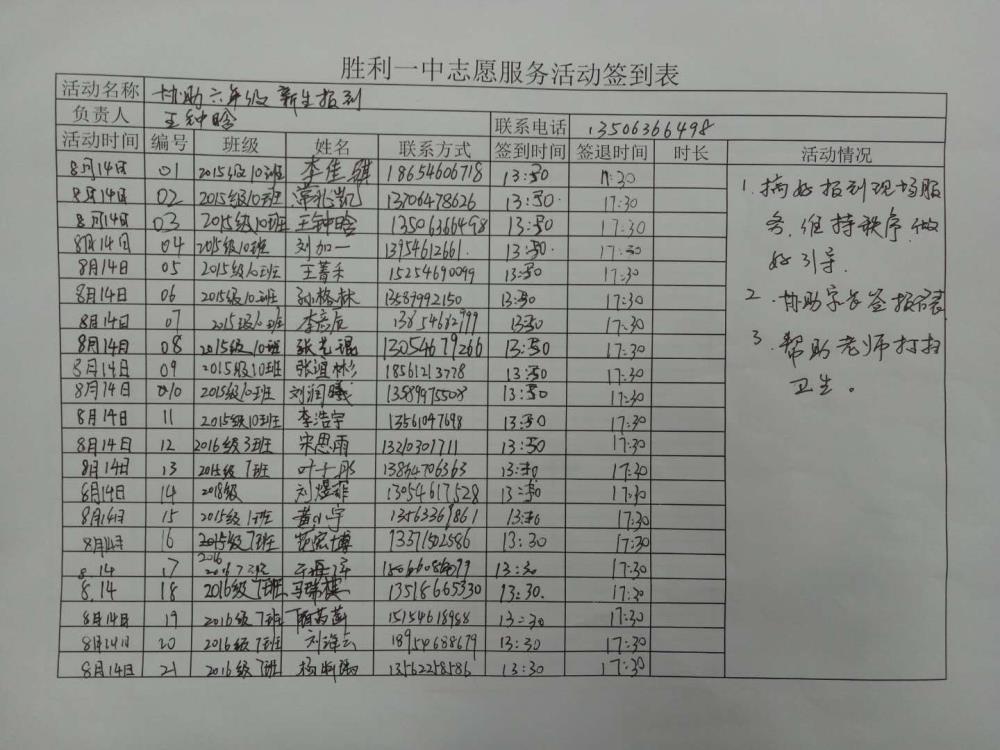 胜利一中志愿服务活动签到表
活动名称 协助六年级新生报到
负责人 王钟晗 联系电话 13506366498
活动时间 编号 班级 姓名 联系方式 签到时间 签退时间 时长 活动情况
8月14日 01 2015级10班 李佳骐 18654606718 13:30 17:30
8月14日 02 2015级10班 13706478626 13:30 17:30
8月14日 03 2015级10班 王钟晗 13506366498 13:30 17:30
8月14日 04 2015级10班 刘加一 13954612661 13:30 17:30
8月14日 05 2015级10班 王菁禾 15254690099 13:30 17:30
8月14日 06 2015级10班 孙格林 13589992150 13:30 17:30
8月14日 07 2015级10班 13854682999 13:30 17:30
8月14日 08 2015级10班 13054679266 13:30 17:30
8月14日 09 2015级10班 张谊彬 18561213778 13:30 17:30
8月14日 10 2015级10班 刘润曦 13589975508 13:30 17:30
8月14日 11 2015级10班 李浩宇 13561047698 13:30 17:30
8月14日 12 2016级3班 宋思雨 13210301711 13:30 17:30
8月14日 13 7班 13864706363 13:30 17:30
8月14日 14 2018级 刘煜菲 13054617528 13:30 17:30
8月14日 15 2015级1班 黄小宇 13563369861 13:30 17:30
8月14日 16 2015级7班 13371502586 13:30 17:30
8.14 17 2016 13:30 17:30
8.14 18 2016级7班 马瑞祺 13518665330 13:30 17:30
8月14日 19 2016级7班 15154618988 13:30 17:30
8月14日 20 2016级7班 18954688679 13:30 17:30
8月14日 21 2016级7班 13562258586 13:30 17:30
1. 搞好报到现场服
务,维持秩序,做
好引导.
2. 协助
3. 帮助老师打扫
卫生。